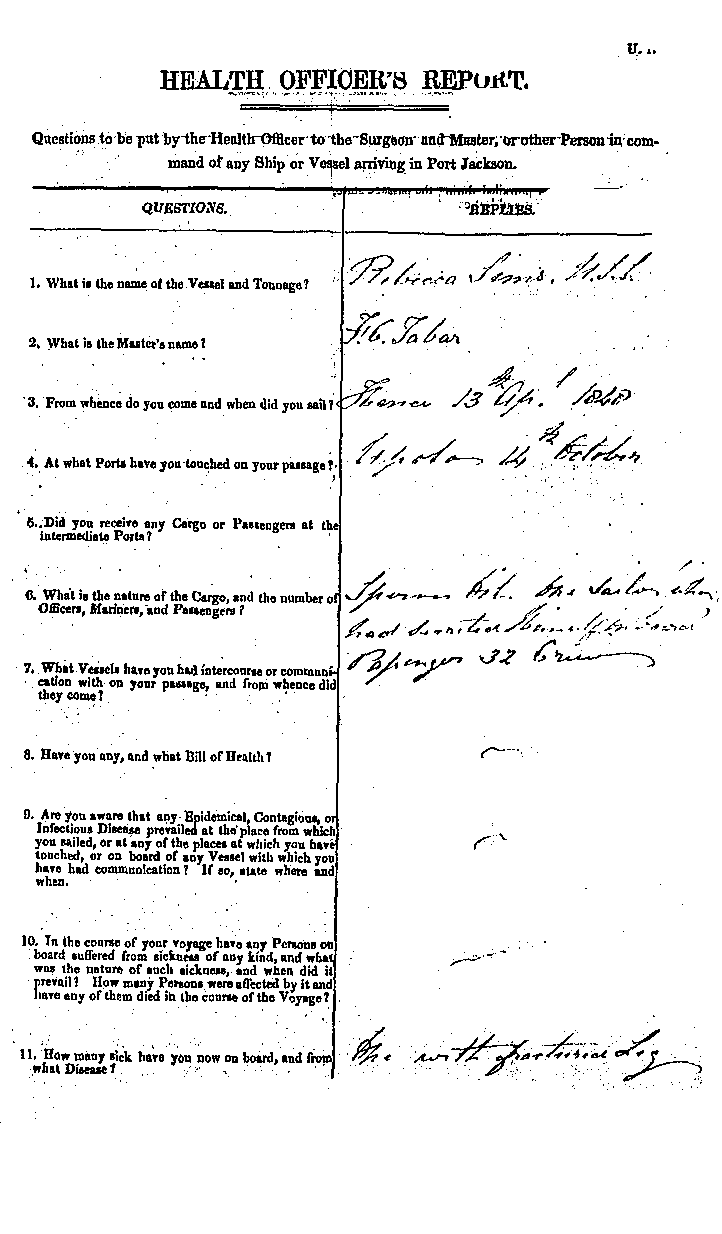 HEALTH OFFICER'S REPORT.
Questions to be put by the Health Officer to the Surgeon and Master, or other Person in com-
mand of any Ship or Vessel arriving in Port Jackson.
QUESTIONS.
REPLIES.
1. What is the name of the Vessel and Tonnage?
Rebecca Sims.
2. What is the Master's name?
Tabar
3. From whence do you come and when did you sail?
13th Apl 1848
4. At what Ports have you touched on your passage?
Upolo 14th October
5. Did you receive any Cargo or Passengers at the
intermediate Ports?
6. What is the nature of the Cargo, and the number of
Officers, Mariners, and Passengers?
Sperm Oil. One Sailor who
had secreted himself on board
7. What Vessels have you had intercourse or communi-
cation with on your passage, and from whence did
they come?
Passenger 32 Crew
8. Have you any, and what Bill of Health?
9. Are you aware that any Epidemical, Contagious, or
Infectious Disease prevailed at the place from which
you sailed, or at any of the places at which you have
touched, or on board of any Vessel with which you
have had communication? If so, state where and
when.
10. In the course of your voyage have any Persons on
board suffered from sickness of any kind, and what
was the nature of such sickness, and when did it
prevail? How many Persons were affected by it and
have any of them died in the course of the Voyage?
11. How many sick have you now on board, and from
what Disease?
One with fractured Leg